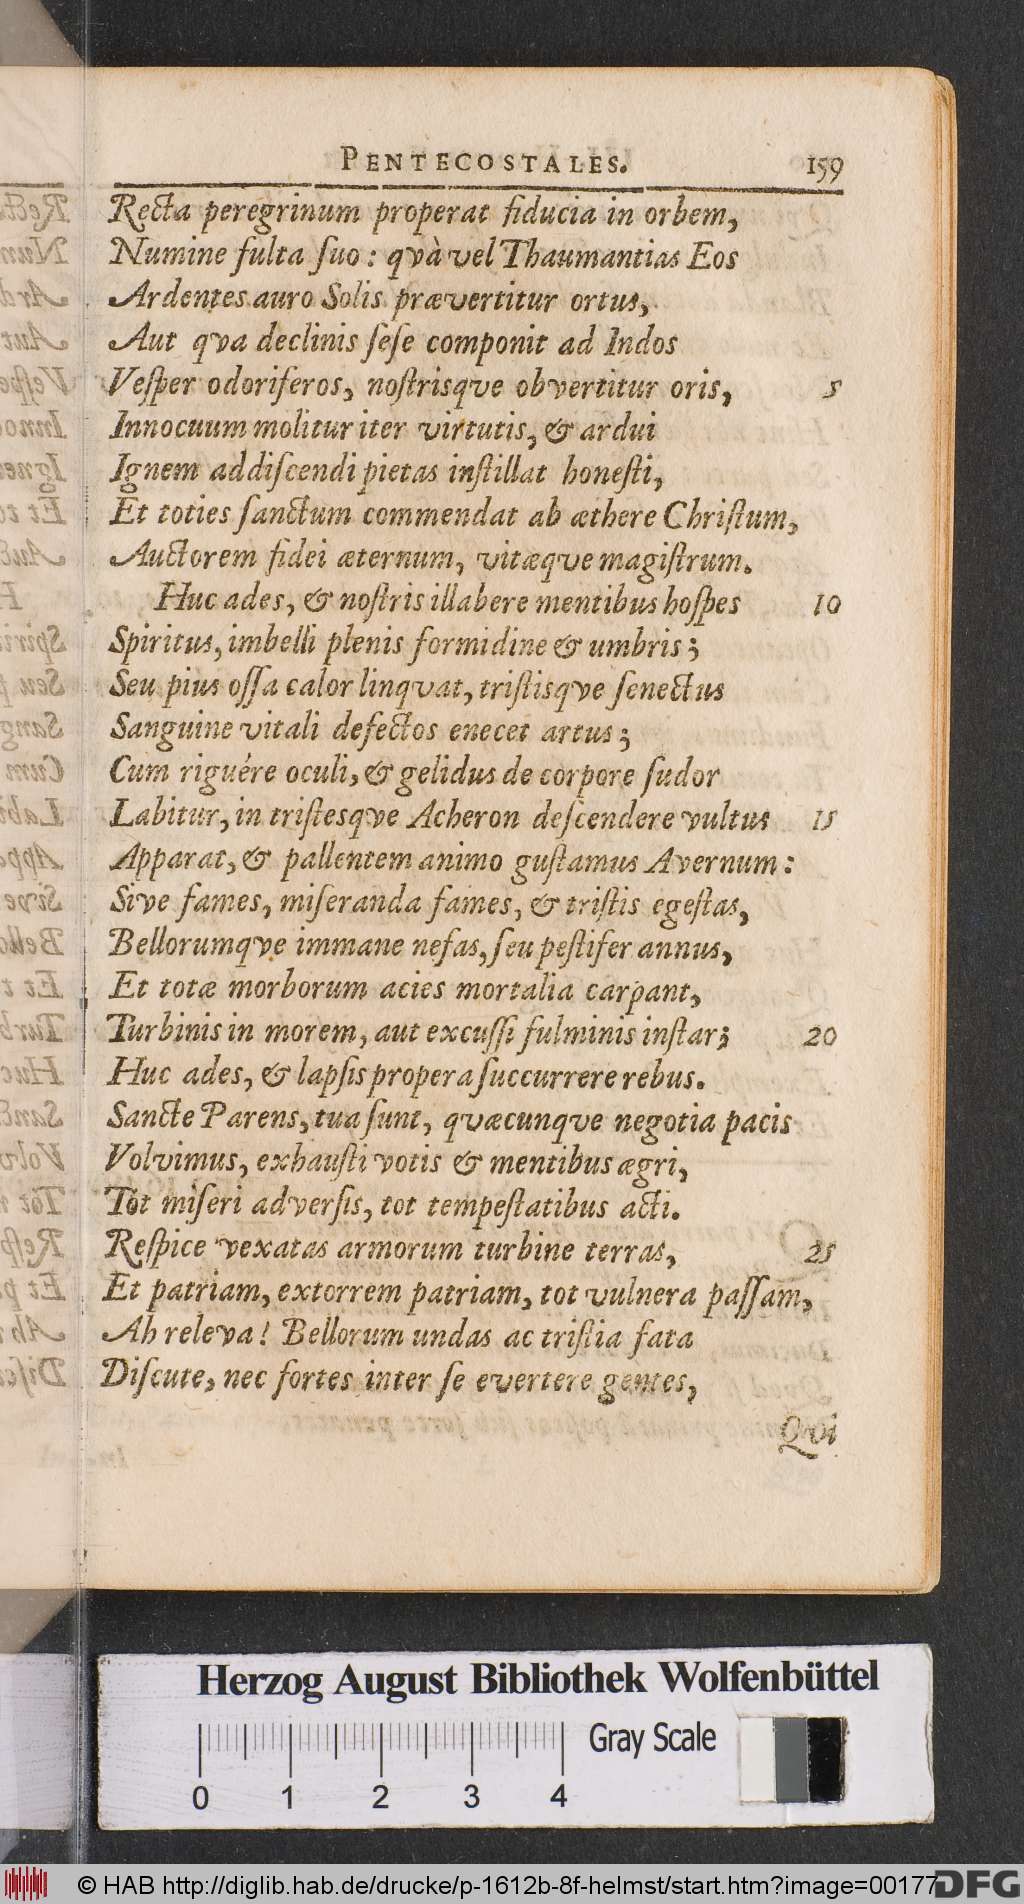 PENTECOSTALES. 159
Recta peregrinum properat fiducia in orbem,
Numine fulta ſuo: qvà vel Thaumantias Eos
Ardentes auro Solis prævertitur ortus,
Aut qva declinis ſeſe componit ad Indos
Veſper odoriferos, noſtrisqve obvertitur oris, 5
Innocuum molitur iter virtutis, & ardui
Ignem addiſcendi pietas inſtillat honeſti,
Et toties ſanctum commendat ab æthere Chriſtum,
Auctorem fidei æternum, vitæqve magiſtrum.
Huc ades, & noſtris illabere mentibus hoſpes 10
Spiritus, imbelli plenis formidine & umbris;
Seu pius oſſa calor linqvat, triſtisqve ſenectus
Sanguine vitali defectos enecet artus;
Cum riguére oculi, & gelidus de corpore ſudor
Labitur, in triſtesqve Acheron deſcendere vultus 15
Apparat, & pallentem animo guſtamus Avernum:
Sive fames, miſeranda fames, & triſtis egeſtas,
Bellorumqve immane nefas, ſeu peſtifer annus,
Et totæ morborum acies mortalia carpant,
Turbinis in morem, aut excuſſi fulminis inſtar; 20
Huc ades, & lapſis propera ſuccurrere rebus.
Sancte Parens, tua ſunt, qvæcunqve negotia pacis
Volvimus, exhauſti votis & mentibus ægri,
Tot miſeri adverſis, tot tempeſtatibus acti.
Reſpice vexatas armorum turbine terras, 25
Et patriam, extorrem patriam, tot vulnera paſſam,
Ah releva! Bellorum undas ac triſtia fata
Diſcute, nec fortes inter ſe evertere gentes,
Qvi
Herzog August Bibliothek Wolfenbüttel
Gray Scale
0 1 2 3 4
© HAB http://diglib.hab.de/drucke/p-1612b-8f-helmst/start.htm?image=00177
DFG